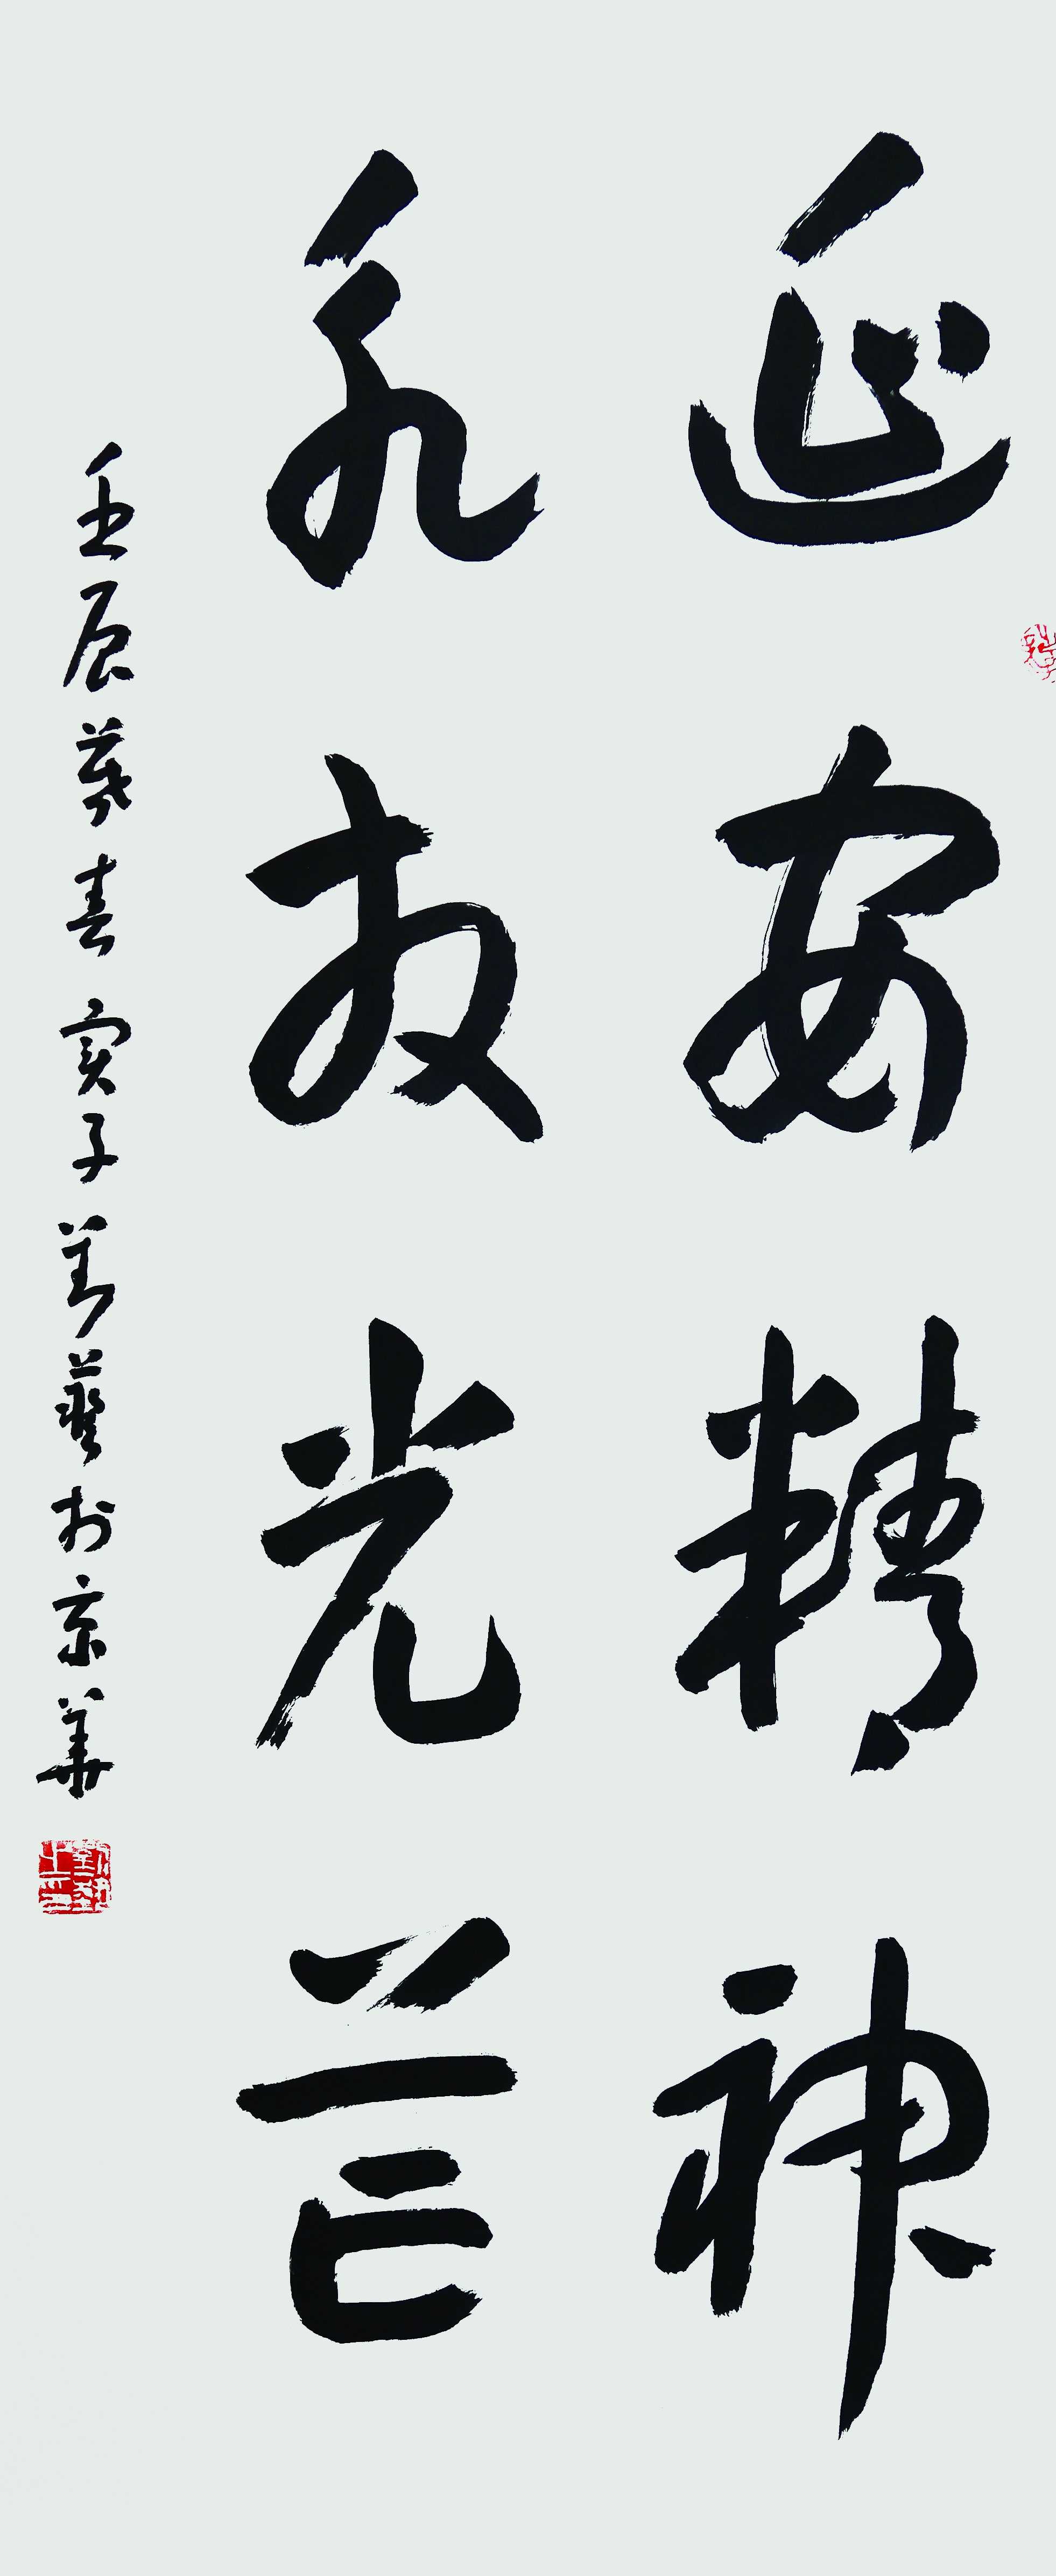 延安精神
永放光芒
壬辰暮春 子 藝於京華